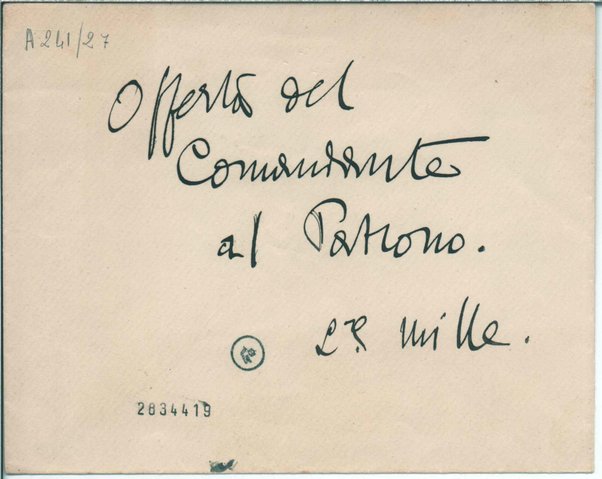 A 241/27
Offerta del
Comandante
al Patrono.
mille.
2834419